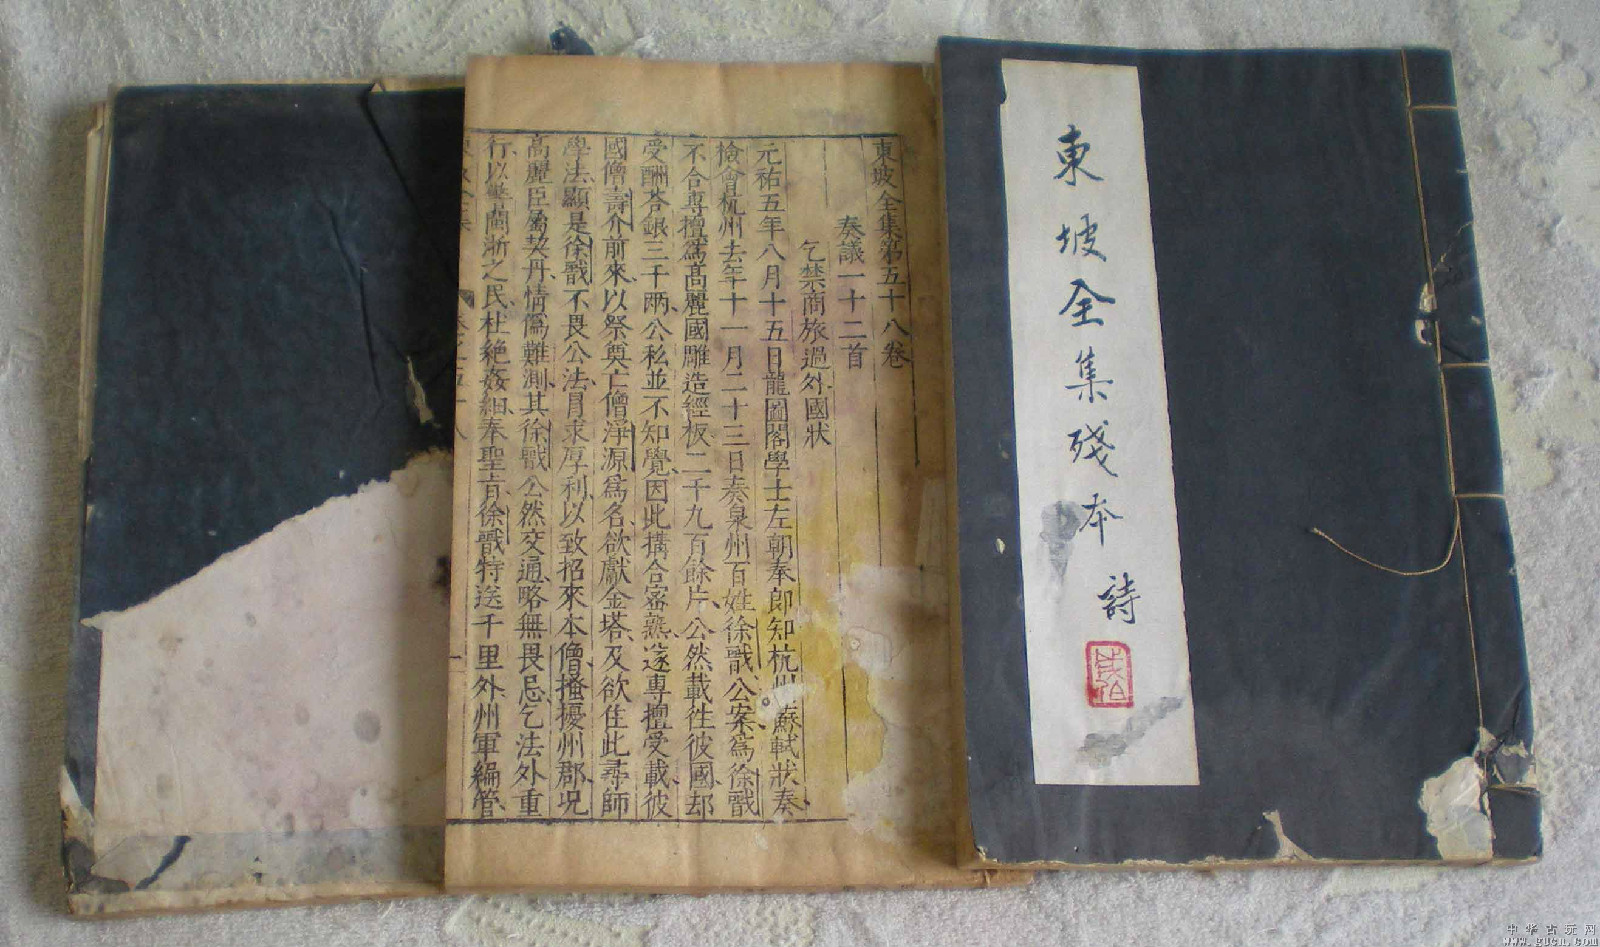 東坡全集殘本
詩
東坡全集第五十八卷
奏議一十二首
乞禁商旅過外國狀
元祐五年八月十五日龍圖閣學士左朝奉郎知杭州蘇軾狀奏
檢會杭州去年十一月二十三日奏泉州百姓徐戩公案爲徐戩
不合專擅爲高麗國雕造經板二千九百餘片公然載徃彼國却
受酬荅銀三千兩公私並不知覺因此搆合密熟遂專擅受載彼
國僧壽介前來以祭奠亡僧淨源爲名欲獻金塔及欲住此尋師
學法顯是徐戩不畏公法冒求厚利以致招來本僧搔擾州郡況
高麗臣屬契丹情僞難測其徐戩公然交通略無畏忌乞法外重
行以警閩浙之民杜絶姦細奉聖旨徐戩特送千里外州軍編管
中华古玩网
www.gucn.com